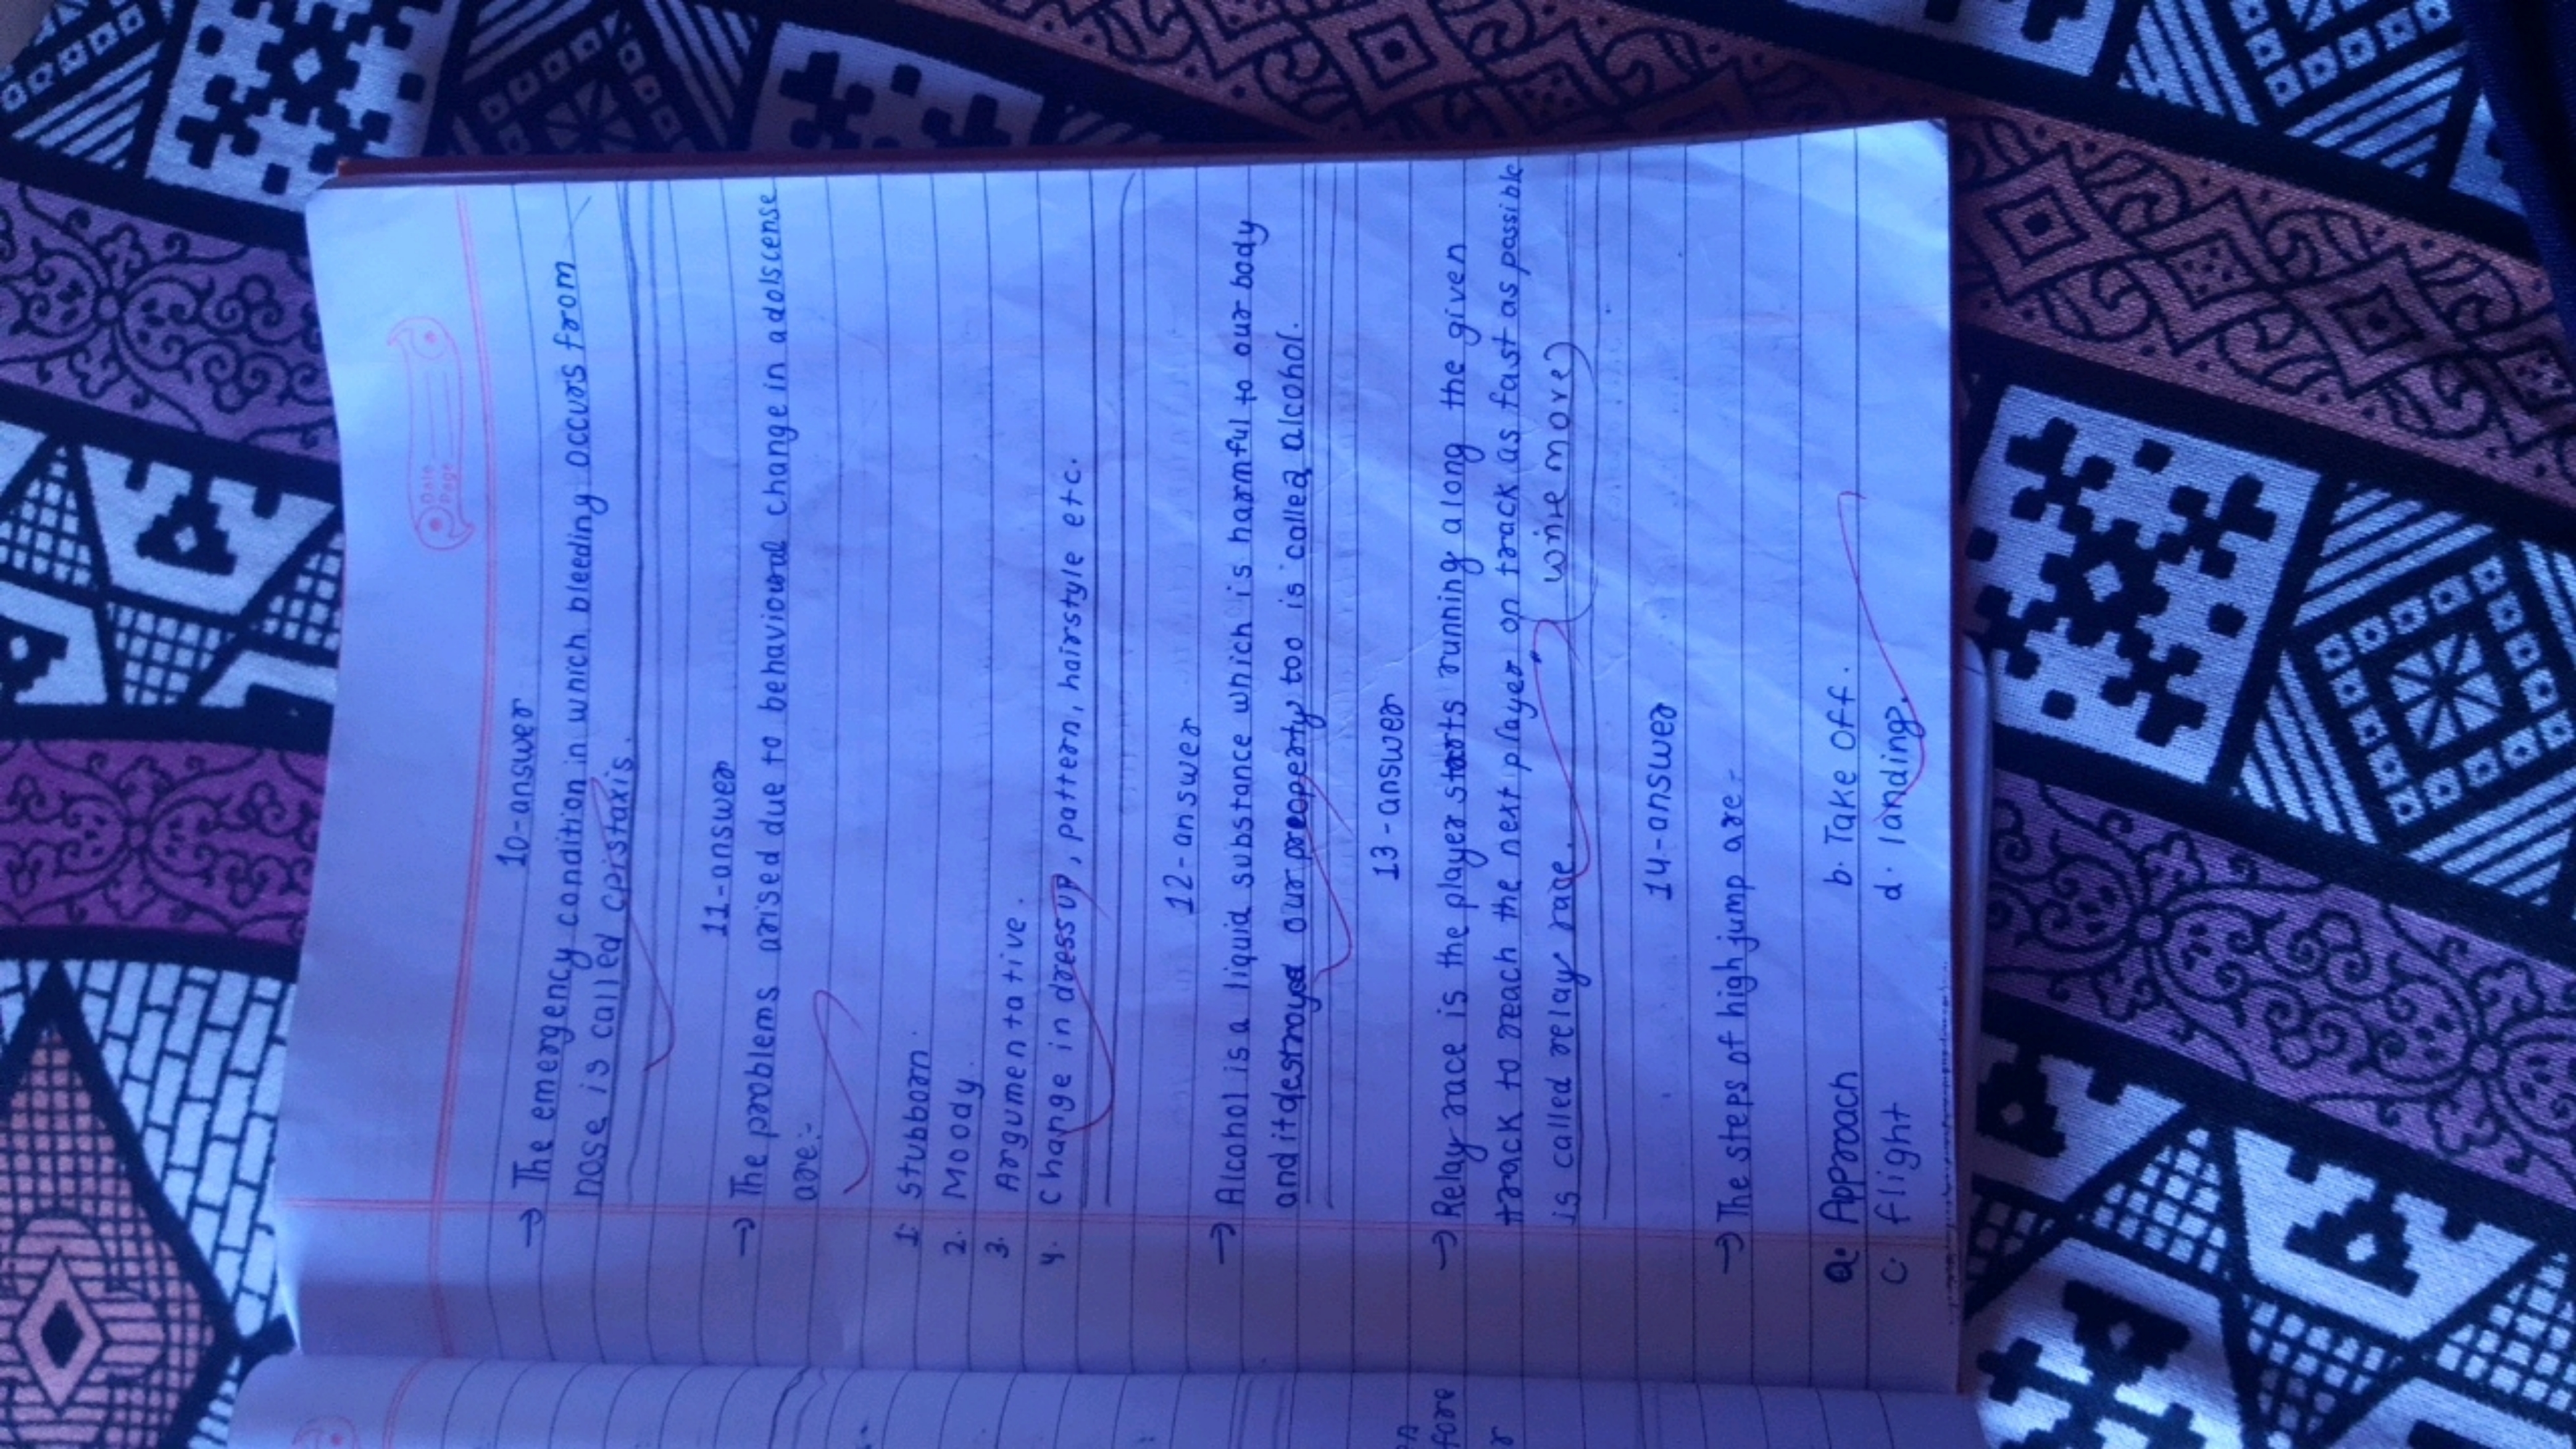 Date
Page
10-answer
→ The emergency condition in which bleeding occurs from
nose is called epistaxis.
11-answer
→ The problems arised due to behavioural change in adolscense
are:-
1. Stubborn.
2. Moody.
3. Argumentative.
4. Change in dress up, pattern, hairstyle etc.
12-answer
→ Alcohol is a liquid substance which is harmful to our body
and it destroyed our property too is called alcohol.
13-answer
→ Relay race is the player starts running along the given
track to reach the next player on track as fast as possible
is called relay race.
(wire more)
14-answer
→ The steps of high jump are-
a. Approach b. Take off.
c. flight d. landing.
fore